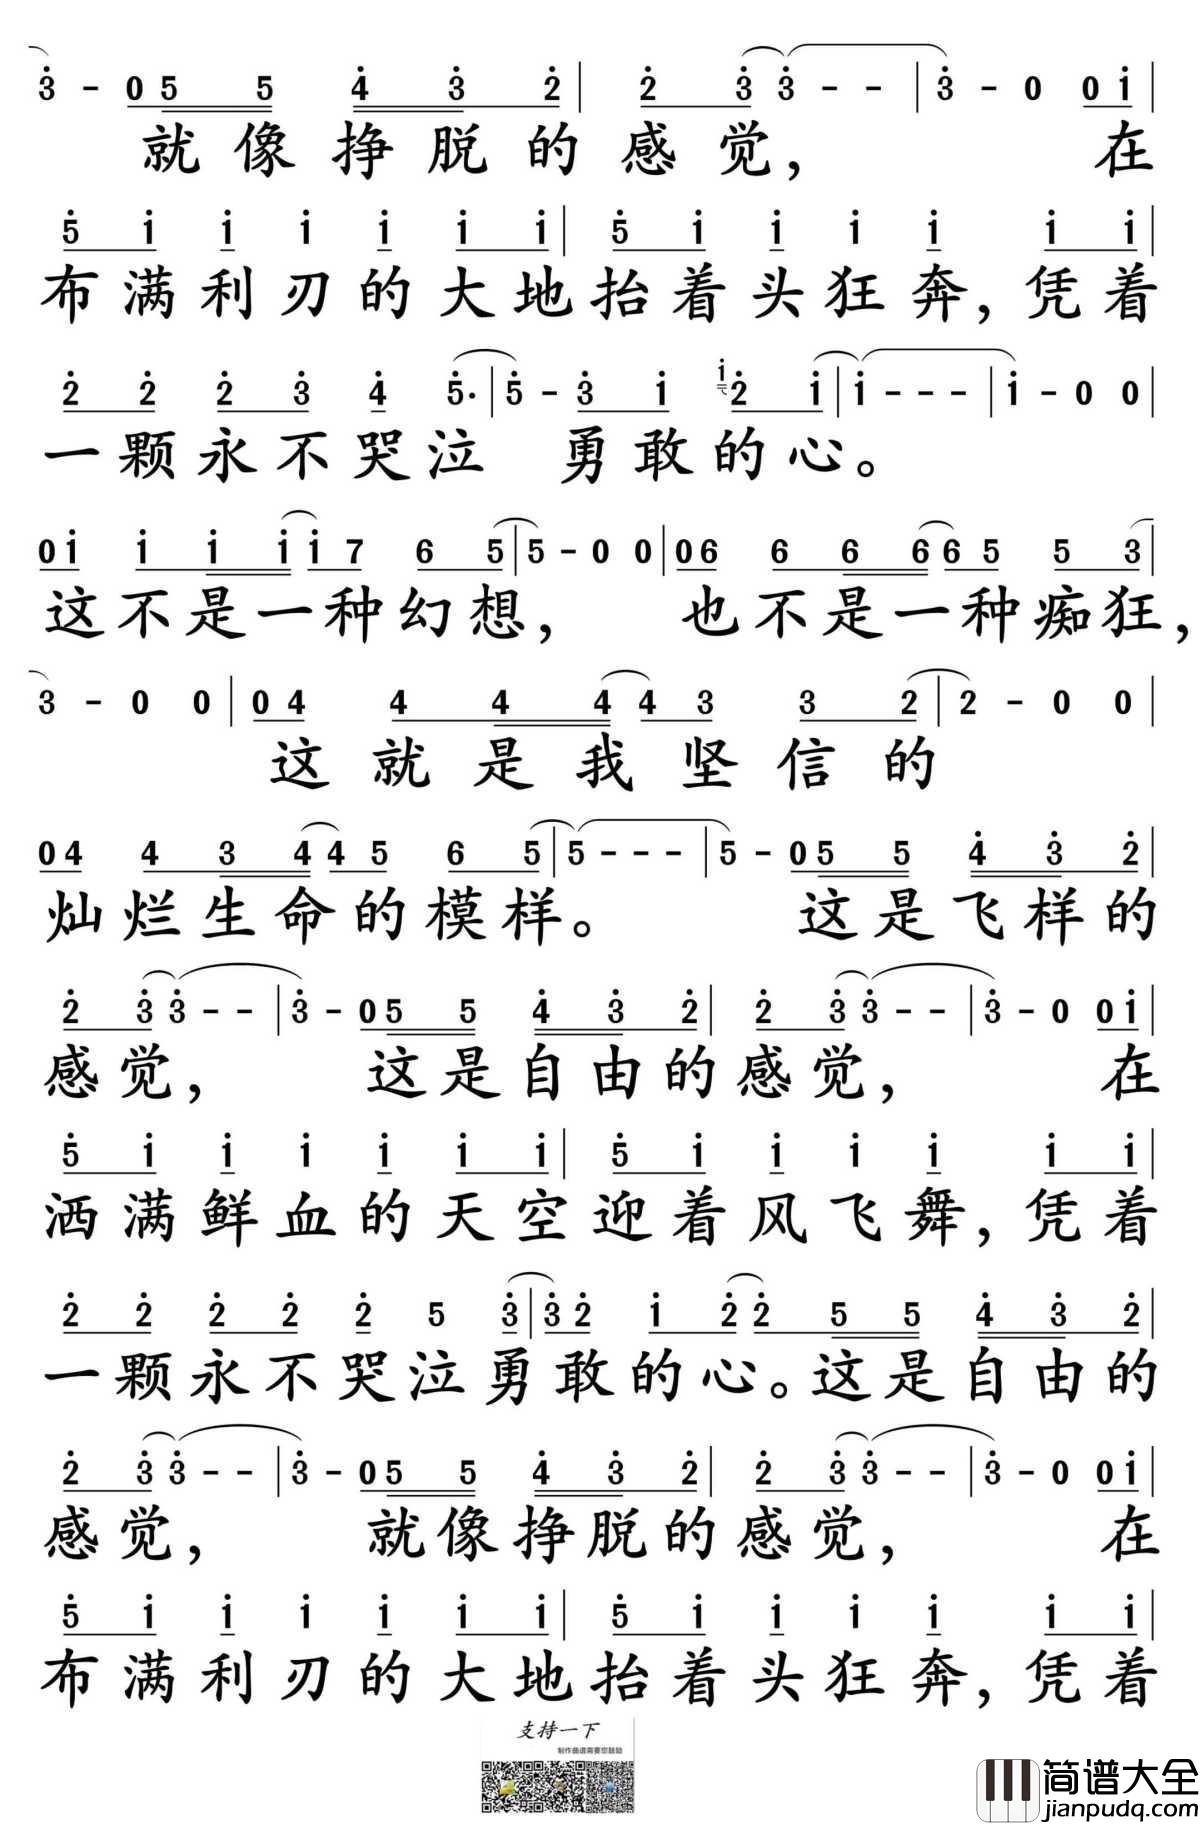 3 - 0 5 5 4 3 2 | 2 3 3 - - | 3 - 0 0 1 |
就像挣脱的感觉， 在
5 1 1 1 1 1 1 | 5 1 1 1 1 1 1 |
布满利刃的大地抬着头狂奔，凭着
2 2 2 3 4 5. | 5 - 3 1 1 2 1 | 1 - - - | 1 - 0 0 |
一颗永不哭泣 勇敢的心。
0 1 1 1 1 1 7 6 5 | 5 - 0 0 | 0 6 6 6 6 6 5 5 3 |
这不是一种幻想， 也不是一种痴狂，
3 - 0 0 | 0 4 4 4 4 4 3 3 2 | 2 - 0 0 |
这就是我坚信的
0 4 4 3 4 4 5 6 5 | 5 - - - | 5 - 0 5 5 4 3 2 |
灿烂生命的模样。 这是飞样的
2 3 3 - - | 3 - 0 5 5 4 3 2 | 2 3 3 - - | 3 - 0 0 1 |
感觉， 这是自由的感觉， 在
5 1 1 1 1 1 1 | 5 1 1 1 1 1 1 |
洒满鲜血的天空迎着风飞舞，凭着
2 2 2 2 2 5 3 | 3 2 1 2 2 5 5 4 3 2 |
一颗永不哭泣勇敢的心。这是自由的
2 3 3 - - | 3 - 0 5 5 4 3 2 | 2 3 3 - - | 3 - 0 0 1 |
感觉， 就像挣脱的感觉， 在
5 1 1 1 1 1 1 | 5 1 1 1 1 1 1 |
布满利刃的大地抬着头狂奔，凭着
支持一下
制作曲谱需要您鼓励
简谱大全
jianpudq.com